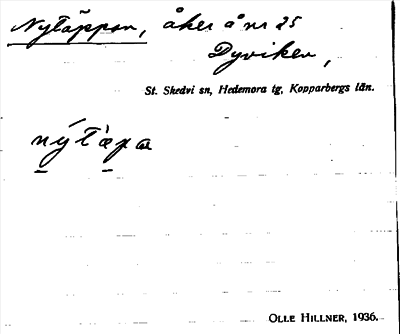 Nytäppan, åker å nr 25
Dyviken,
St. Skedvi sn, Hedemora tg, Kopparbergs län.
nýt'äpa
OLLE HILLNER, 1936.